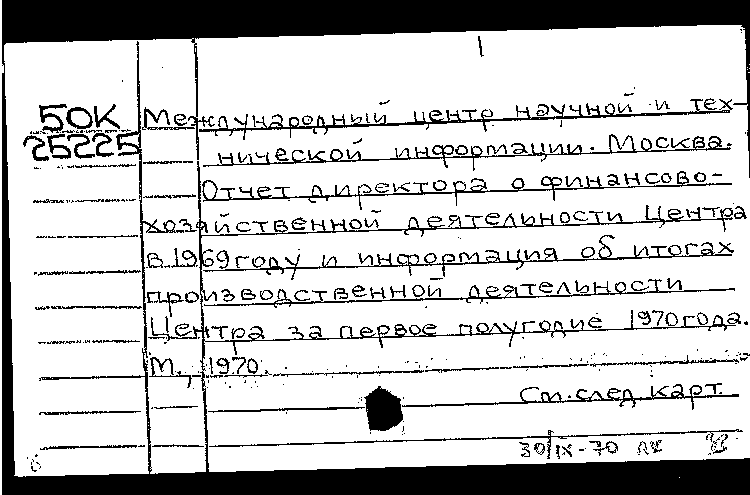 1
50К Международный центр научной и тех-
25225 нической информации. Москва.
Отчет директора о финансово-
хозяйственной деятельности Центра
в 1969 году и информация об итогах
производственной деятельности
Центра за первое полугодие 1970 года.
М., 1970.
См. след карт.
30/IX-70